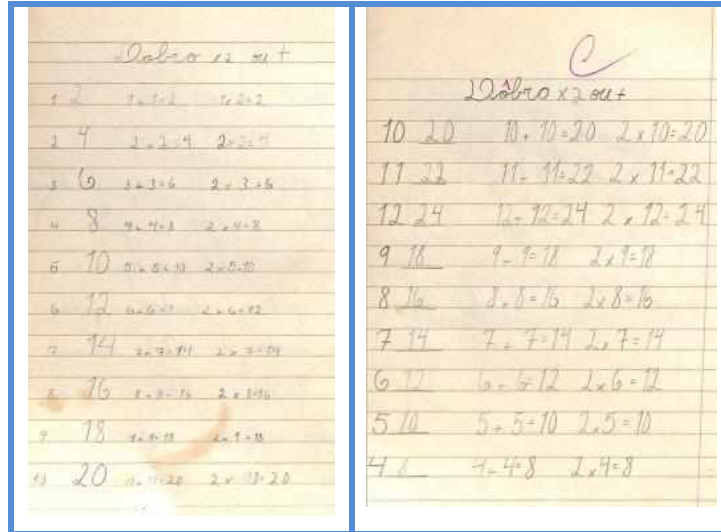 Dobro x2 ou +
1 2 1+1=2 1x2=2
2 4 2+2=4 2x2=4
3 6 3+3=6 2x3=6
4 8 4+4=8 2x4=8
5 10 5+5=10 2x5=10
6 12 6+6=1 2x6=12
7 14 7+7=14 2x7=14
8 16 8+8=16 2x8=16
9 18 9+9=18 2x9=18
10 20 10+10=20 2x10=20
C
Dôbro x2 ou +
10 20 10+10=20 2x10=20
11 22 11+11=22 2x11=22
12 24 12+12=24 2x12=24
9 18 9+9=18 2x9=18
8 16 8+8=16 2x8=16
7 14 7+7=14 2x7=14
6 12 6+6=12 2x6=12
5 10 5+5=10 2x5=10
4 8 4+4=8 2x4=8